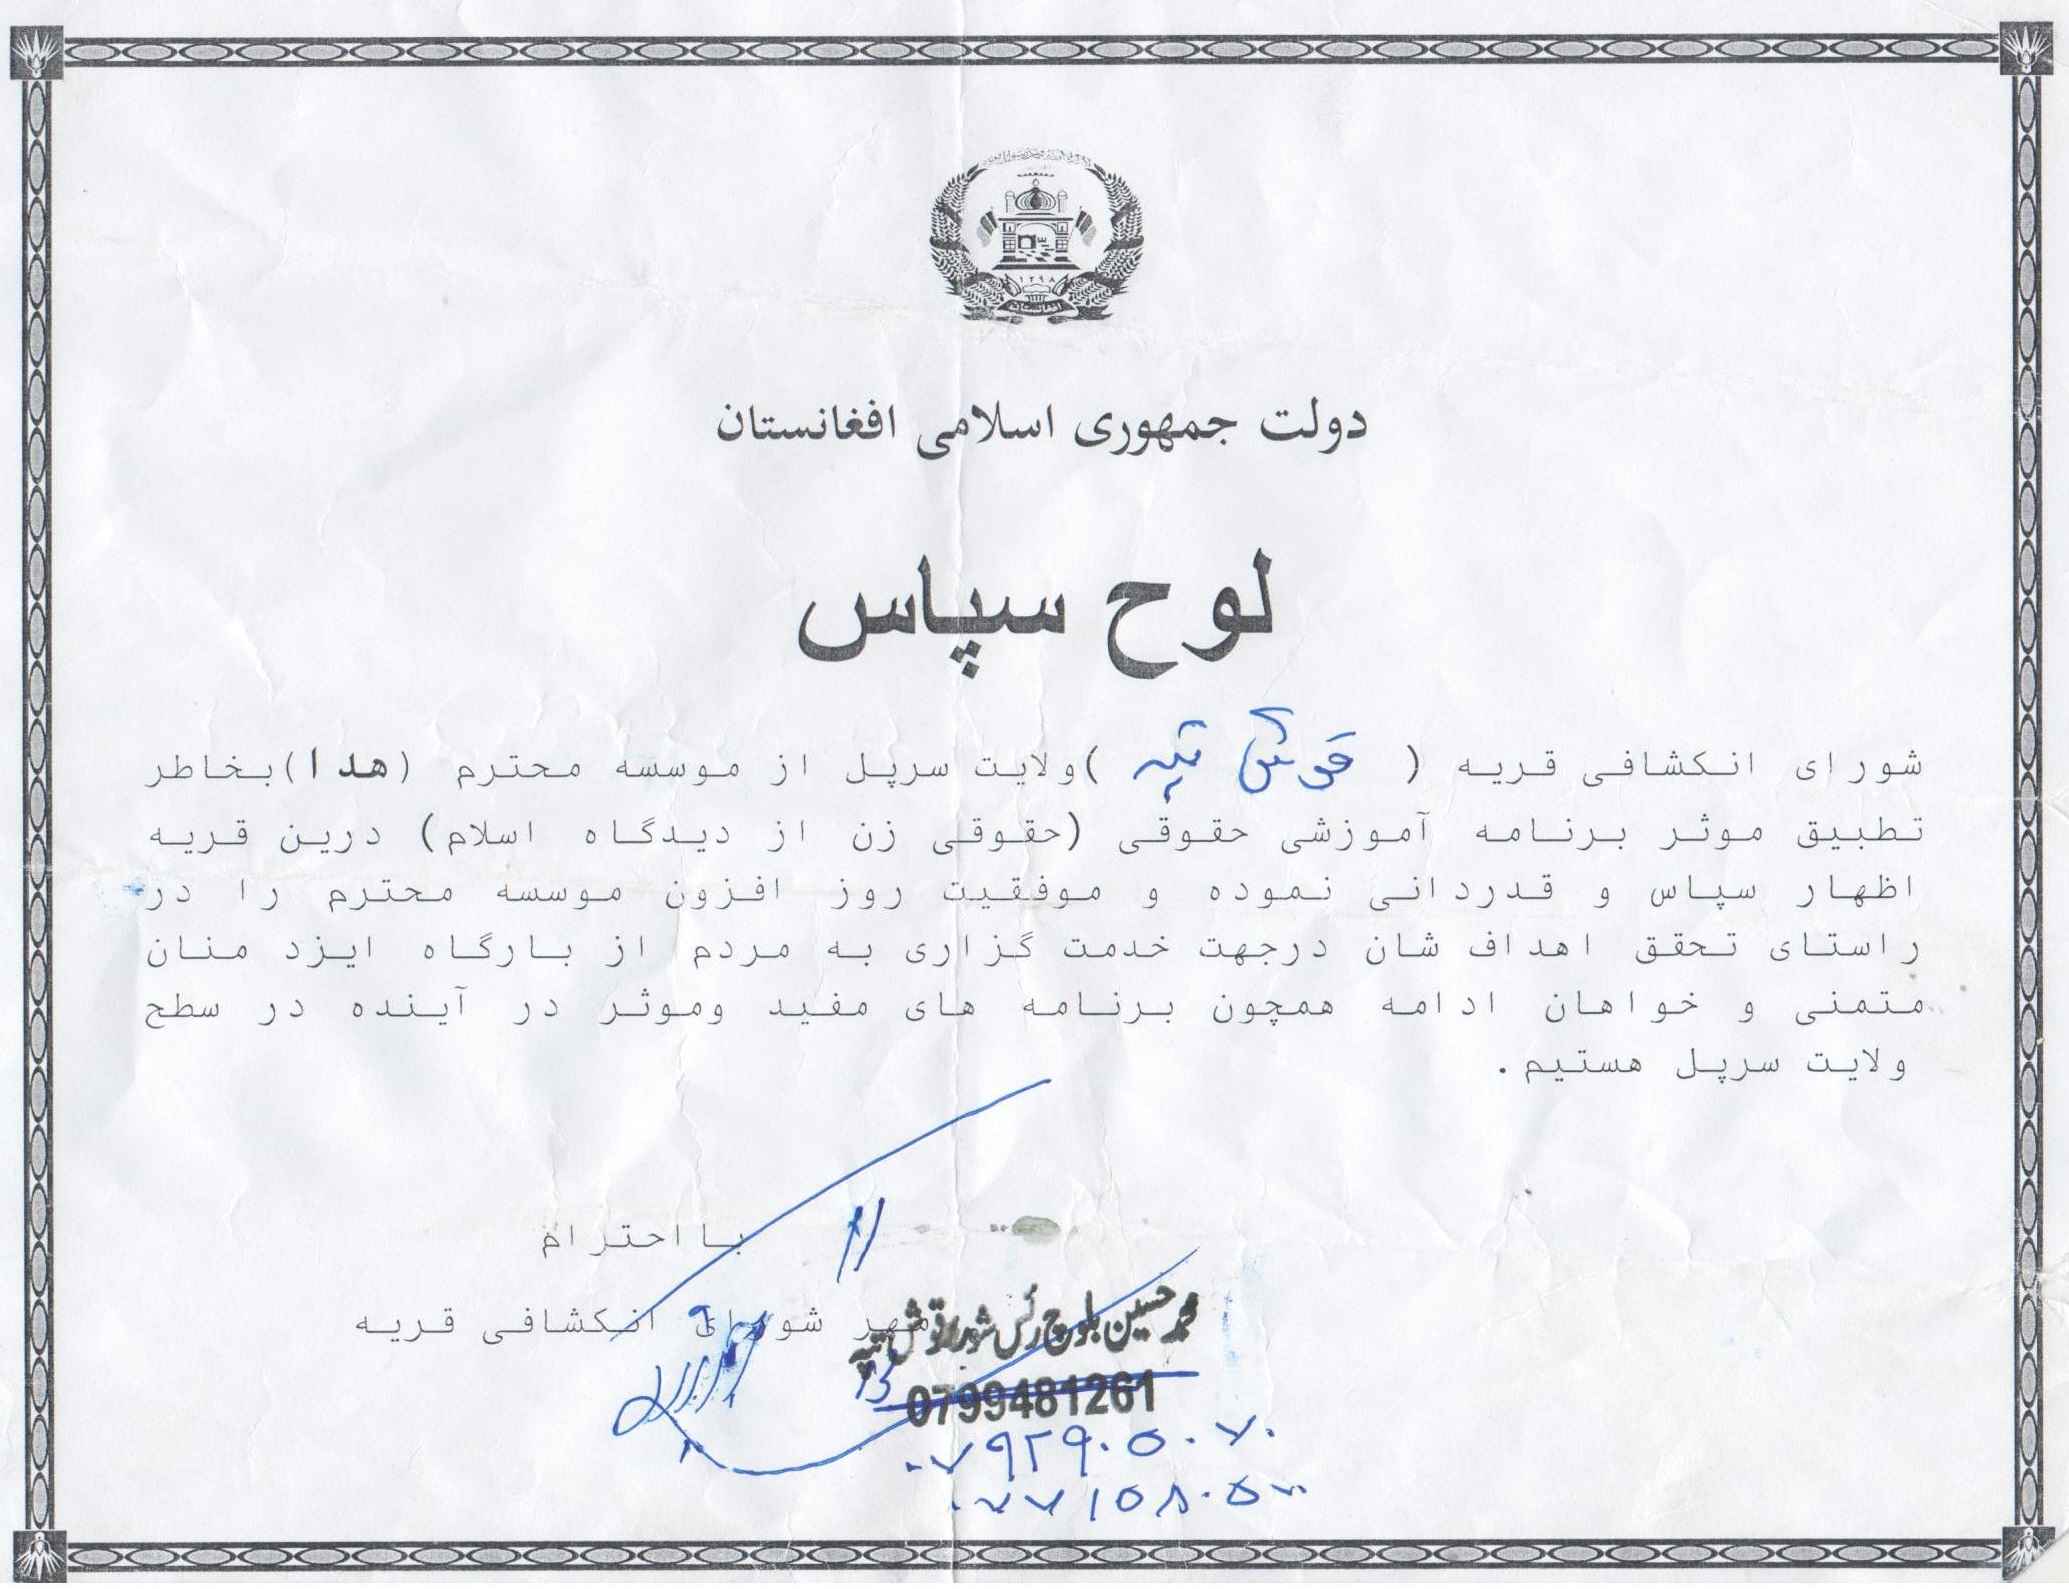 ۱۲۹۸
افغانستان
دولت جمهوری اسلامی افغانستان
لوح سپاس
شورای انکشافی قریه ( قوش تپه )ولایت سرپل از موسسه محترم (هدا)بخاطر
تطبیق موثر برنامه آموزشی حقوقی (حقوقی زن از دیدگاه اسلام) درین قریه
اظهار سپاس و قدردانی نموده و موفقیت روز افزون موسسه محترم را در
راستای تحقق اهداف شان درجهت خدمت گزاری به مردم از بارگاه ایزد منان
متمنی و خواهان ادامه همچون برنامه های مفید وموثر در آینده در سطح
ولایت سرپل هستیم.
بااحترام
مهر شورای انکشافی قریه
محمد حسین بلوچ رئس شورا قوش تپه
0799481261
۰۷۹۲۹۰۵۰۷۰